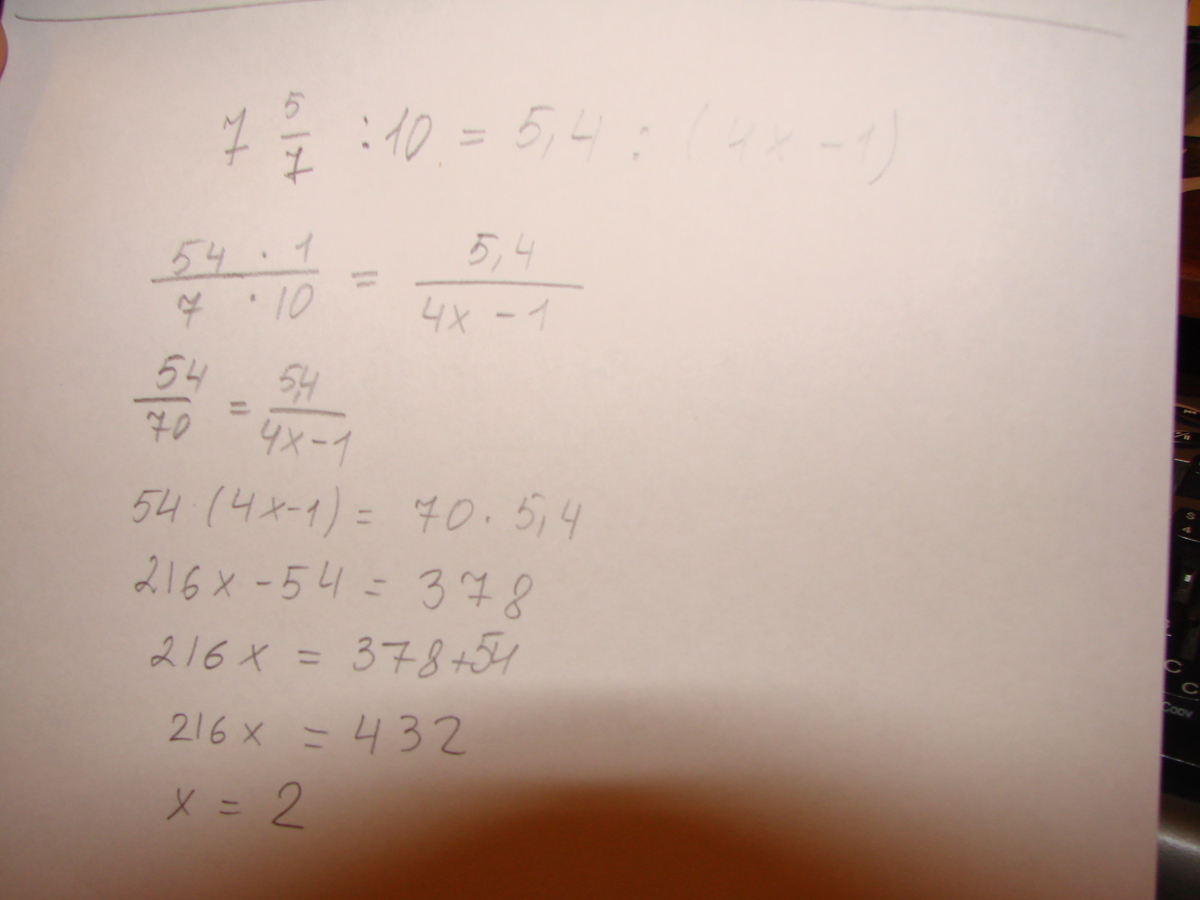 7 5/7 : 10 = 5,4 : (4x - 1)
54 · 1 / 7 · 10 = 5,4 / 4x - 1
54/70 = 5,4 / 4x - 1
54 (4x-1) = 70 · 5,4
216x - 54 = 378
216x = 378+54
216x = 432
x = 2
C
C
Copy